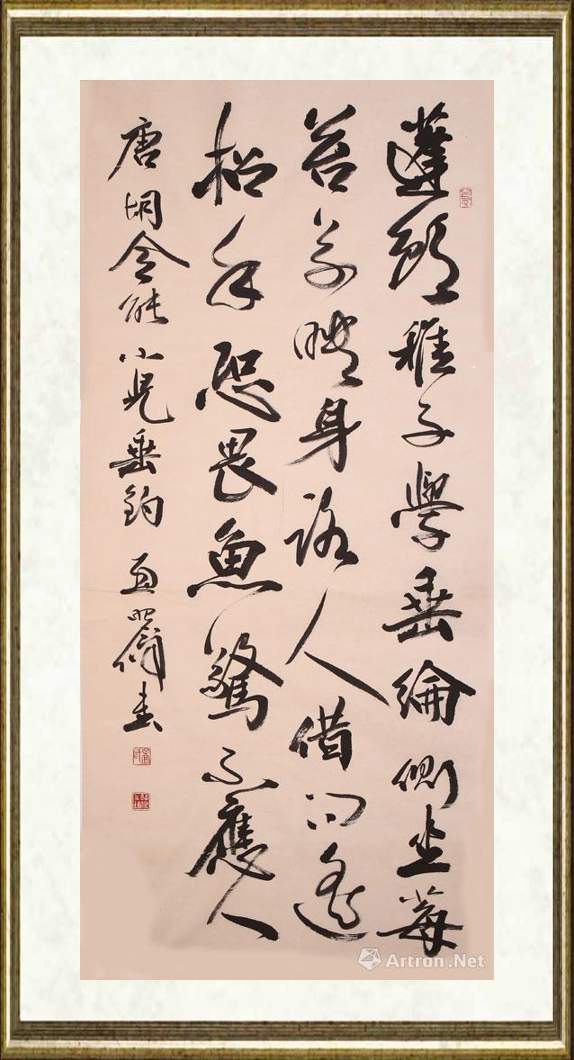 蓬頭稚子學垂綸側坐莓
苔草映身路人借問遙
招手恐畏魚驚不應人
唐胡令能小兒垂釣 書
Artron.Net